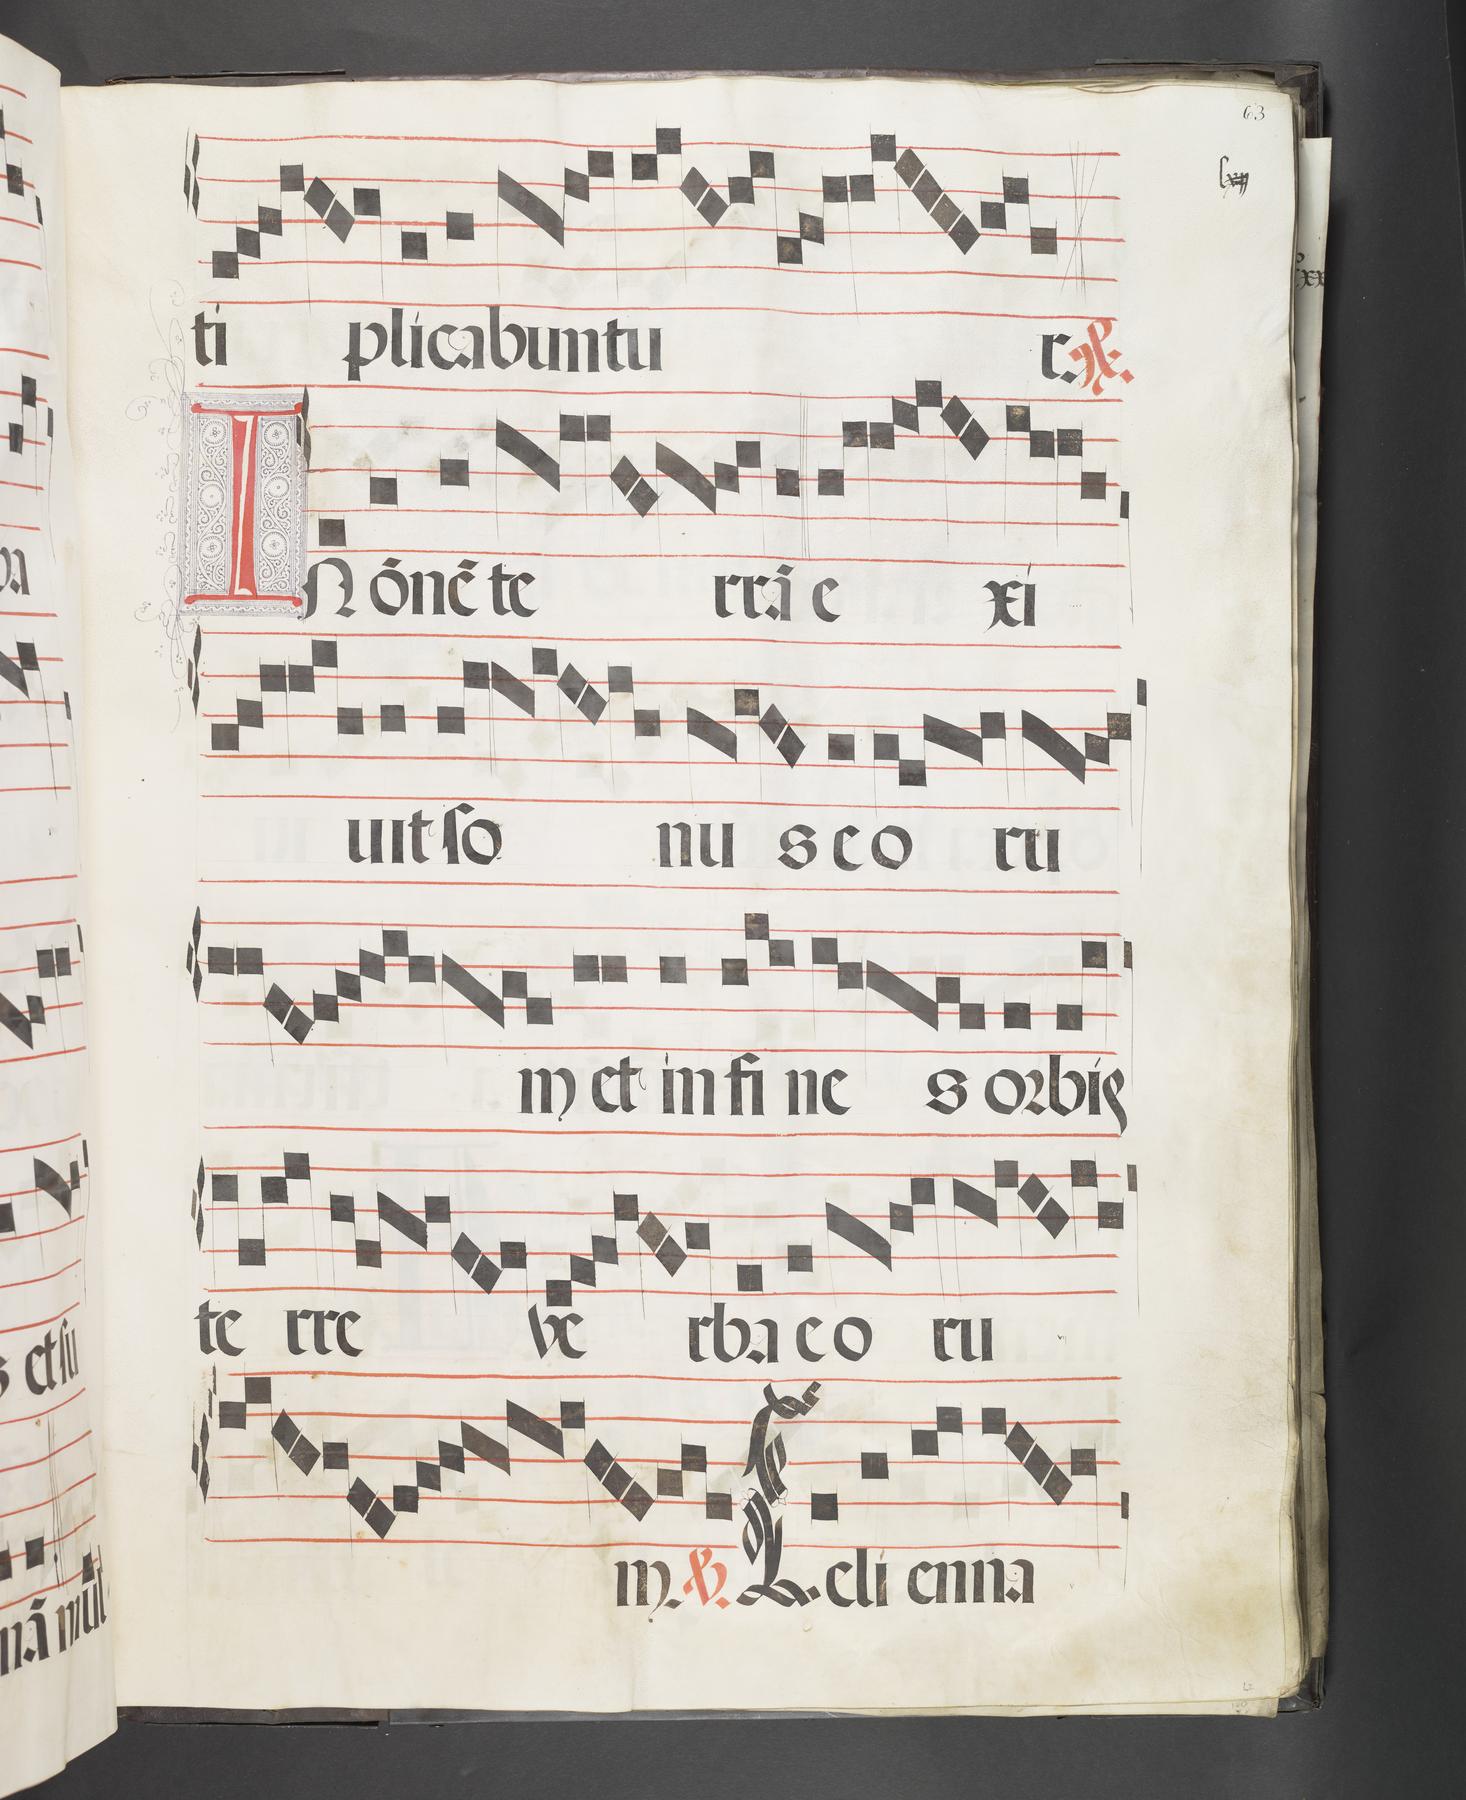 63
ti plicabuntu r. ℟.
IN ōnē te rrā e xi
uit so nu s e o ru
m et in fi ne s orbis
te rre ve rba e o ru
m. ℣. Celi enna